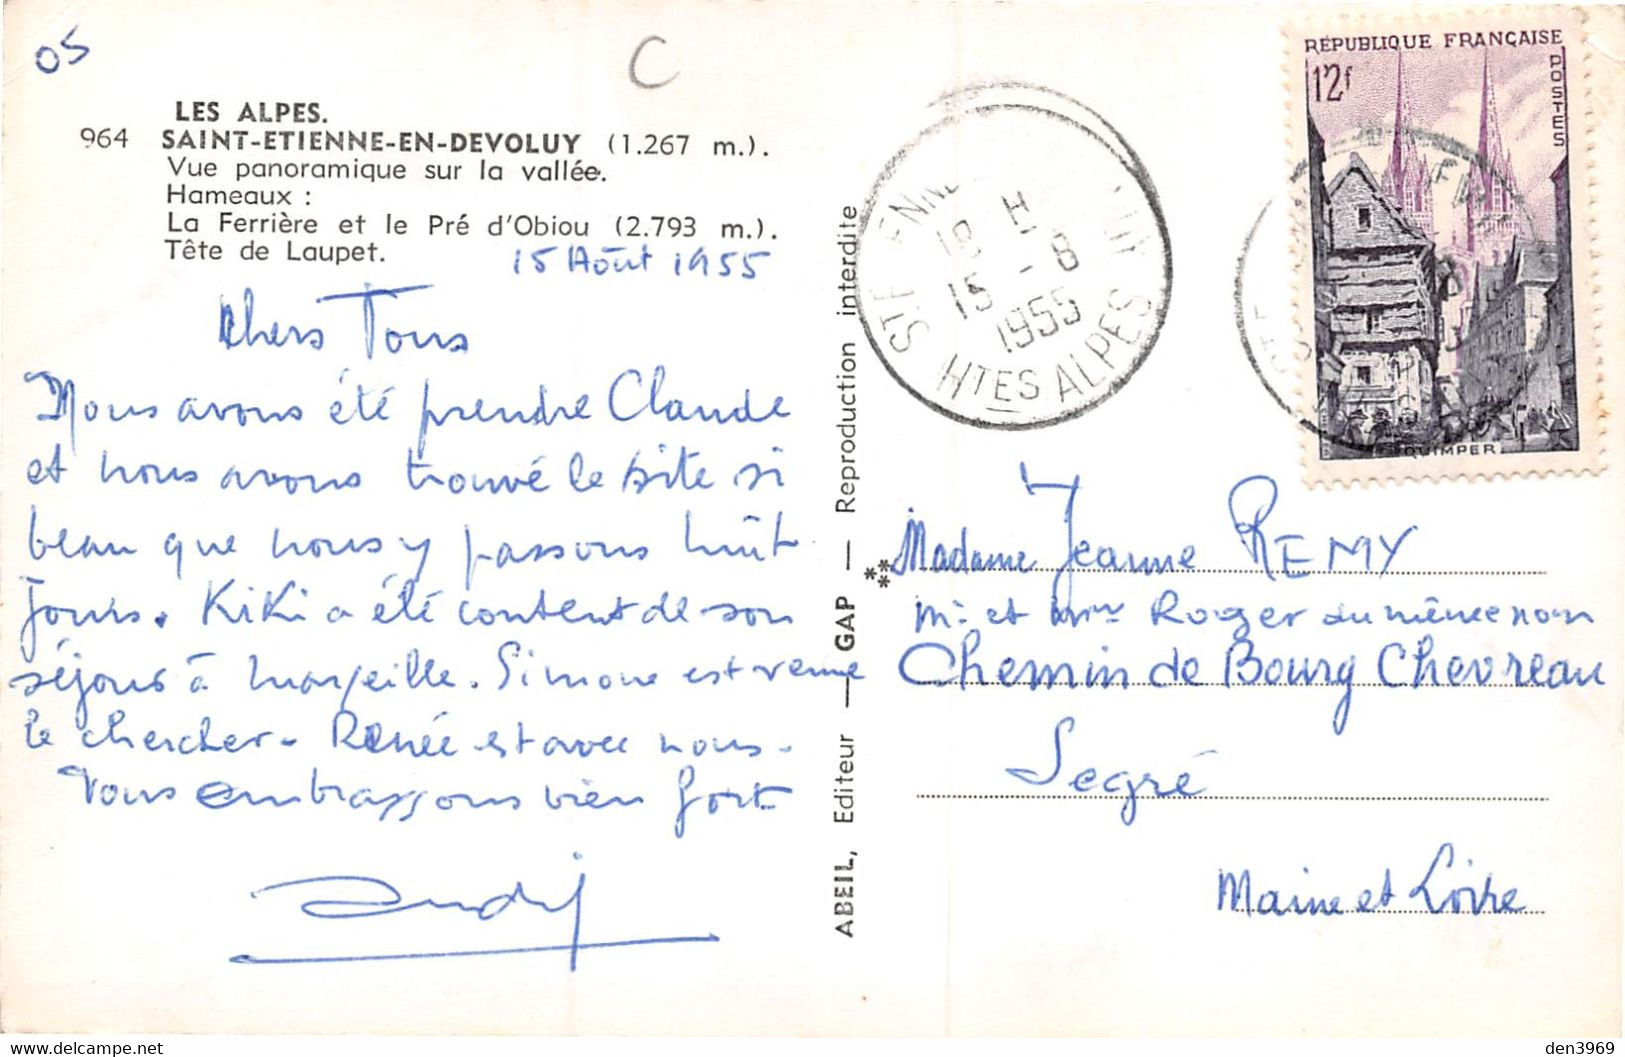 05
C
LES ALPES.
964 SAINT-ETIENNE-EN-DEVOLUY (1.267 m.).
Vue panoramique sur la vallée.
Hameaux :
La Ferrière et le Pré d'Obiou (2.793 m.).
Tête de Laupet.
15 Août 1955
Chers Tous
Nous avons été prendre Claude
et nous avons trouvé le site si
beau que nous y passons huit
jours. Kiki a été content de son
séjour à Marseille. Simone est venue
le chercher - Renée est avec nous -
Vous embrassons bien fort
ABEIL, Editeur — GAP — Reproduction interdite
**
RÉPUBLIQUE FRANÇAISE
12f
POSTES
QUIMPER
18 H
15 - 8
1955
HTES ALPES
Madame Jeanne REMY
Mr et Mme Roger du même nom
Chemin de Bourg Chevreau
Segré
Maine et Loire
den3969